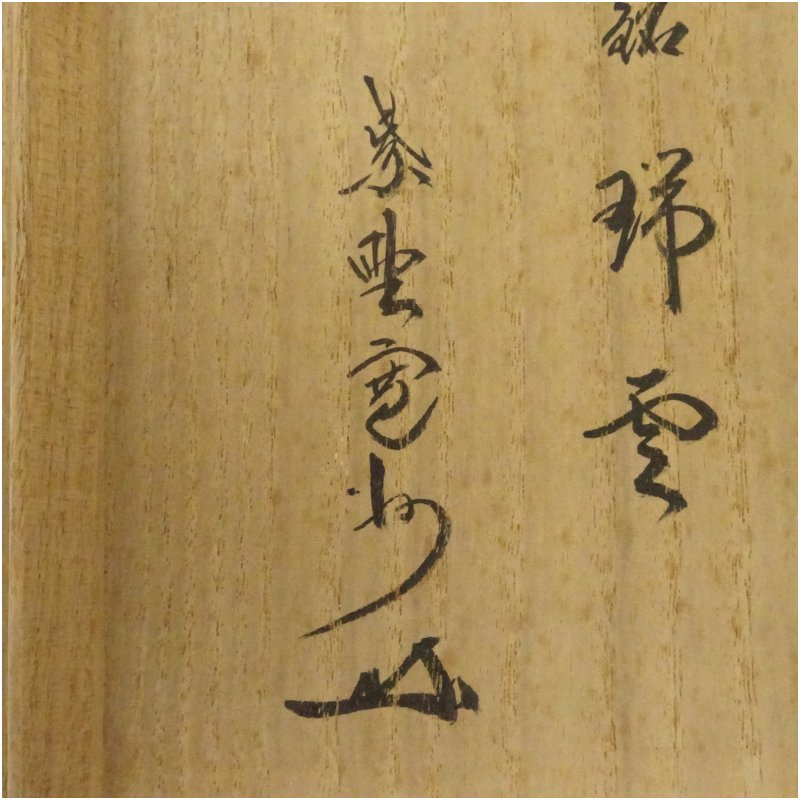 銘 瑞雲
紫野寛州